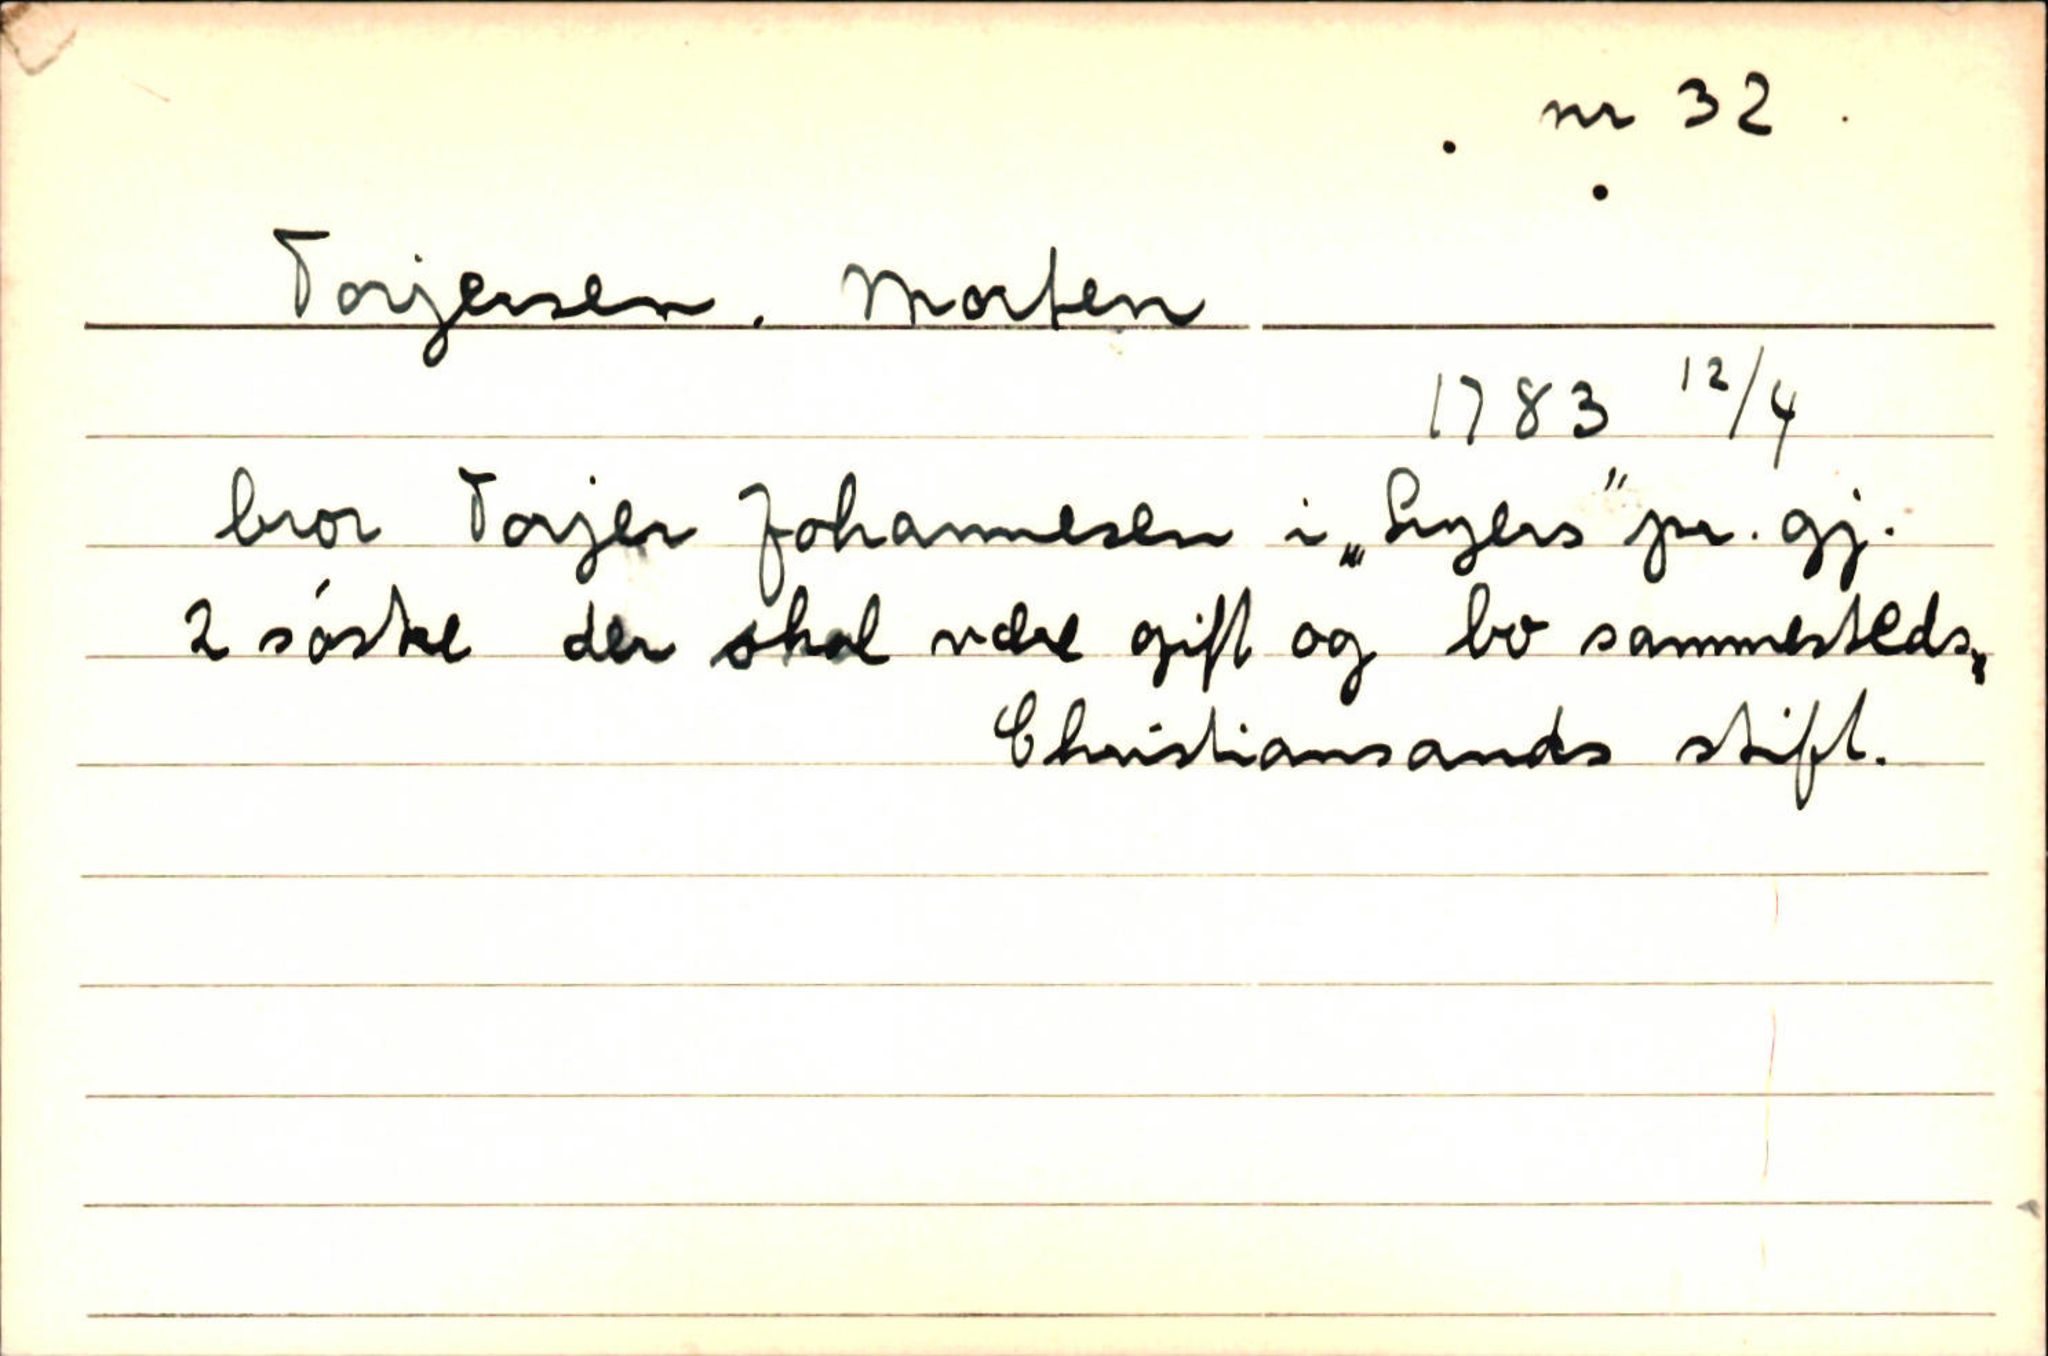 nr 32
Torjersen. Morten
1783 12/4
bror Torjer Johannesen i „Lyers" pr. gj.
2 søstre der skal være gift og bo sammesteds,
Christiansands stift.